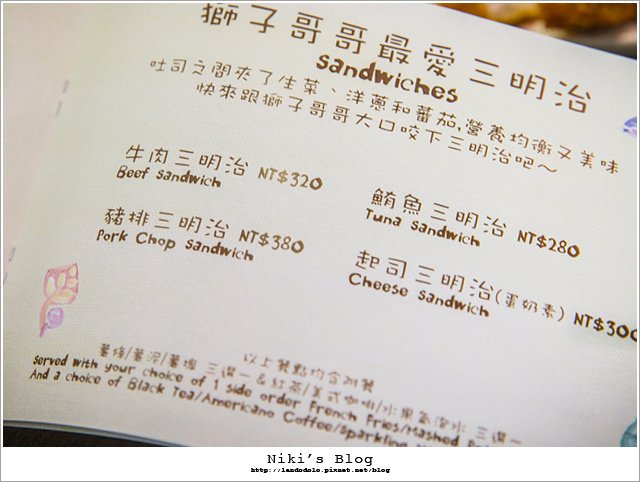 獅子哥哥最愛三明治
sandwiches
吐司之間夾了生菜、洋蔥和蕃茄,營養均衡又美味
快來跟獅子哥哥大口咬下三明治吧~
牛肉三明治 NT$320
Beef Sandwich
鮪魚三明治 NT$280
Tuna Sandwich
豬排三明治 NT$380
Pork Chop Sandwich
起司三明治(蛋奶素) NT$300
Cheese Sandwich
以上餐點均含附餐
薯條/薯泥/薯塊 三選一 & 紅茶/美式咖啡/水果氣泡水 三選一
Served with your choice of 1 side order French Fries/Mashed
And a choice of Black Tea/Americano Coffee/Sparkling
Niki's Blog
http://landodolo.pixnet.net/blog